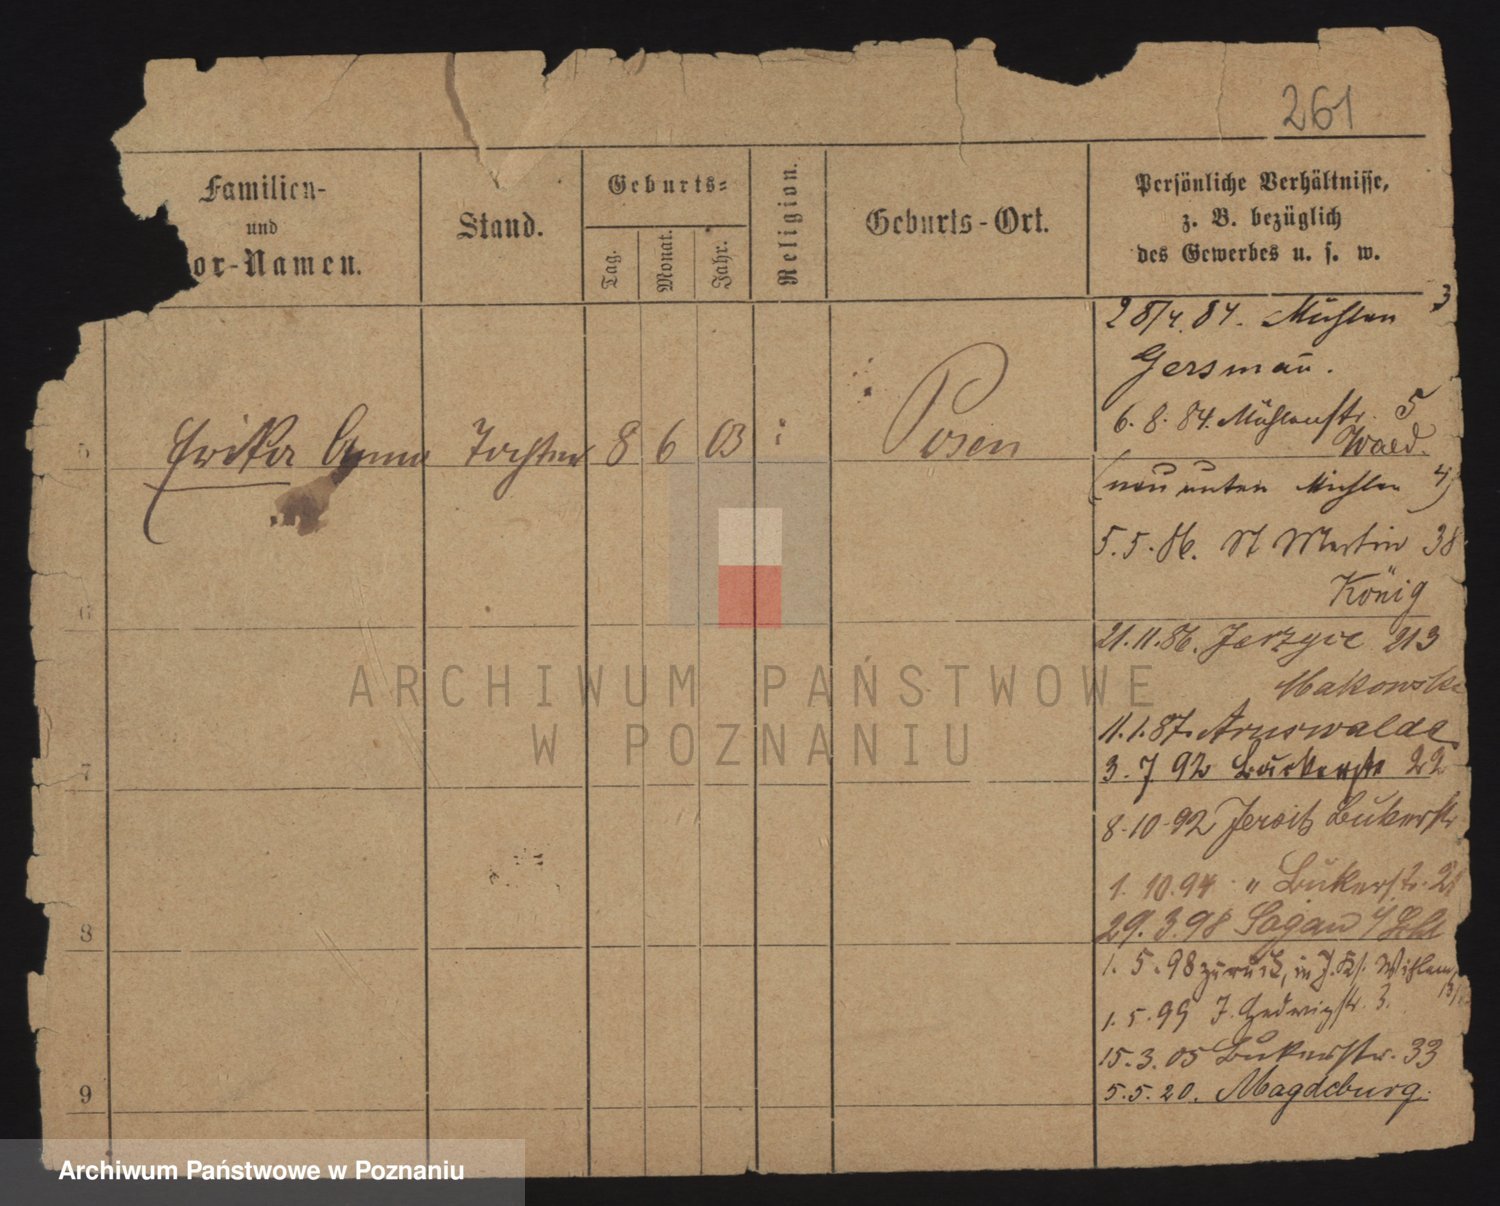 261
Familien-
und
or-Namen.
Stand.
Geburts-
Tag.
Monat.
Jahr.
Religion.
Geburts-Ort.
Persönliche Verhältnisse,
z. B. bezüglich
des Gewerbes u. s. w.
28/4. 84. Mühlen 3
Gersmañ.
6. 8. 84. Mühlenstr. 5
Wald.
5 Erika Anna Tochter 8 6 03 Posen
(neu unten Mühlen 4)
5. 5. 86. St Martin 38
König
6
21. 11. 86. Jerzyce 213
Makowsk
11. 1. 87. Arnswalde
7
3. 7 92 22
8. 10. 92 Jersitz Bukerstr
1. 10. 94 " Bukerstr. 21
29. 3. 98 Sagan
8
1. 5. 98 zurück, in J. Ks. Wilhelm
1. 5. 99 J. Hedwigstr. 3.
15. 3. 05 Bukerstr. 33
5. 5. 20. Magdeburg.
9
ARCHIWUM PAŃSTWOWE
W POZNANIU
Archiwum Państwowe w Poznaniu